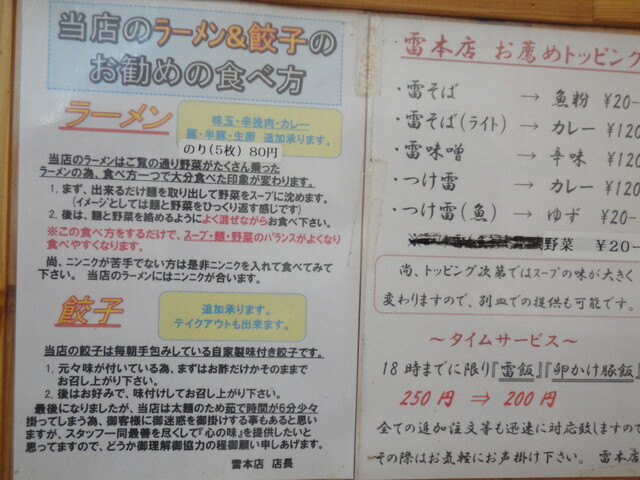 当店のラーメン&餃子の
お勧めの食べ方
ラーメン
味玉・辛挽肉・カレー
豚・半豚・生卵 追加承ります。
のり(5枚) 80円
当店のラーメンはご覧の通り野菜がたくさん乗った
ラーメンの為、食べ方一つで大分食べた印象が変わります。
1. まず、出来るだけ麺を取り出して野菜をスープに沈めます。
(イメージとしては麺と野菜をひっくり返す感じです)
2. 後は、麺と野菜を絡めるようによく混ぜながらお食べ下さい。
※この食べ方をするだけで、スープ・麺・野菜のバランスがよくなり
食べやすくなります。
尚、ニンニクが苦手でない方は是非ニンニクを入れて食べてみて
下さい。 当店のラーメンにはニンニクが合います。
餃子
追加承ります。
テイクアウトも出来ます。
当店の餃子は毎朝手包みしている自家製味付き餃子です。
1. 元々味が付いている為、まずはお酢だけかそのままで
お召し上がり下さい。
2. 後はお好みで、味付けしてお召し上がり下さい。
最後になりましたが、当店は太麺のため茹で時間が6分少々
掛ってしまう為、御客様に御迷惑を御掛けする事もあると思い
ますが、スタッフ一同最善を尽くして『心の味』を提供したいと
思ってますので、どうか御理解御協力の程御願い申しあげます。
雷本店 店長
雷本店 お薦めトッピング
・雷そば → 魚粉 ¥20-
・雷そば(ライト) → カレー ¥120
・雷味噌 → 辛味 ¥120
・つけ雷 → カレー ¥120
・つけ雷(魚) → ゆず ¥20-
野菜 ¥20-
尚、トッピング次第ではスープの味が大きく
変わりますので、別皿での提供も可能です。
～タイムサービス～
18時までに限り『雷飯』『卵かけ豚飯』
250円 ⇒ 200円
全ての追加注文等も迅速に対応致しますので
その際はお気軽にお声掛け下さい。 雷本店